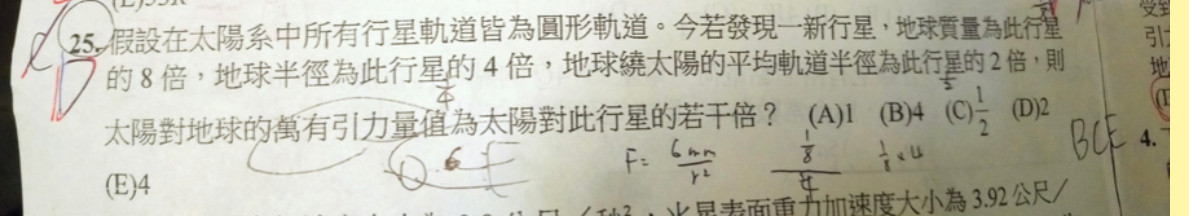 25. 假設在太陽系中所有行星軌道皆為圓形軌道。今若發現一新行星，地球質量為此行星
的 8 倍，地球半徑為此行星的 4 倍，地球繞太陽的平均軌道半徑為此行星的 2 倍，則
太陽對地球的萬有引力量值為太陽對此行星的若干倍？ (A)1 (B)4 (C)1/2 (D)2
(E)4
F= Gmm/r²
1/8 × 4
BCE
4.
加速度大小為 3.92 公尺/